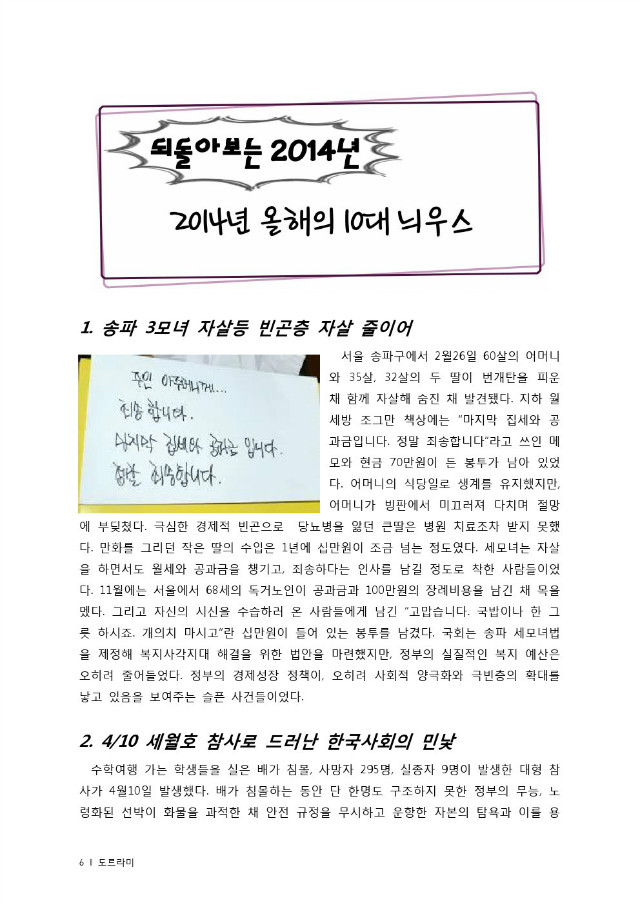 되돌아보는 2014년
2014년 올해의 10대 늬우스
1. 송파 3모녀 자살등 빈곤층 자살 줄이어
주인 아주머니께...
죄송합니다.
마지막 집세와 공과금 입니다.
정말 죄송합니다.
서울 송파구에서 2월26일 60살의 어머니
와 35살, 32살의 두 딸이 번개탄을 피운
채 함께 자살해 숨진 채 발견됐다. 지하 월
세방 조그만 책상에는 "마지막 집세와 공
과금입니다. 정말 죄송합니다"라고 쓰인 메
모와 현금 70만원이 든 봉투가 남아 있었
다. 어머니의 식당일로 생계를 유지했지만,
어머니가 빙판에서 미끄러져 다치며 절망
에 부딪쳤다. 극심한 경제적 빈곤으로 당뇨병을 앓던 큰딸은 병원 치료조차 받지 못했
다. 만화를 그리던 작은 딸의 수입은 1년에 십만원이 조금 넘는 정도였다. 세모녀는 자살
을 하면서도 월세와 공과금을 챙기고, 죄송하다는 인사를 남길 정도로 착한 사람들이었
다. 11월에는 서울에서 68세의 독거노인이 공과금과 100만원의 장례비용을 남긴 채 목을
맸다. 그리고 자신의 시신을 수습하러 온 사람들에게 남긴 "고맙습니다. 국밥이나 한 그
릇 하시죠. 개의치 마시고"란 십만원이 들어 있는 봉투를 남겼다. 국회는 송파 세모녀법
을 제정해 복지사각지대 해결을 위한 법안을 마련했지만, 정부의 실질적인 복지 예산은
오히려 줄어들었다. 정부의 경제성장 정책이, 오히려 사회적 양극화와 극빈층의 확대를
낳고 있음을 보여주는 슬픈 사건들이었다.
2. 4/10 세월호 참사로 드러난 한국사회의 민낯
수학여행 가는 학생들을 실은 배가 침몰, 사망자 295명, 실종자 9명이 발생한 대형 참
사가 4월10일 발생했다. 배가 침몰하는 동안 단 한명도 구조하지 못한 정부의 무능, 노
령화된 선박이 화물을 과적한 채 안전 규정을 무시하고 운항한 자본의 탐욕과 이를 용
6 I 도르라미